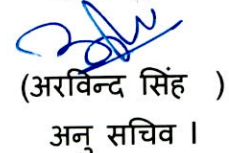 (अरविन्द सिंह )
अनु सचिव ।